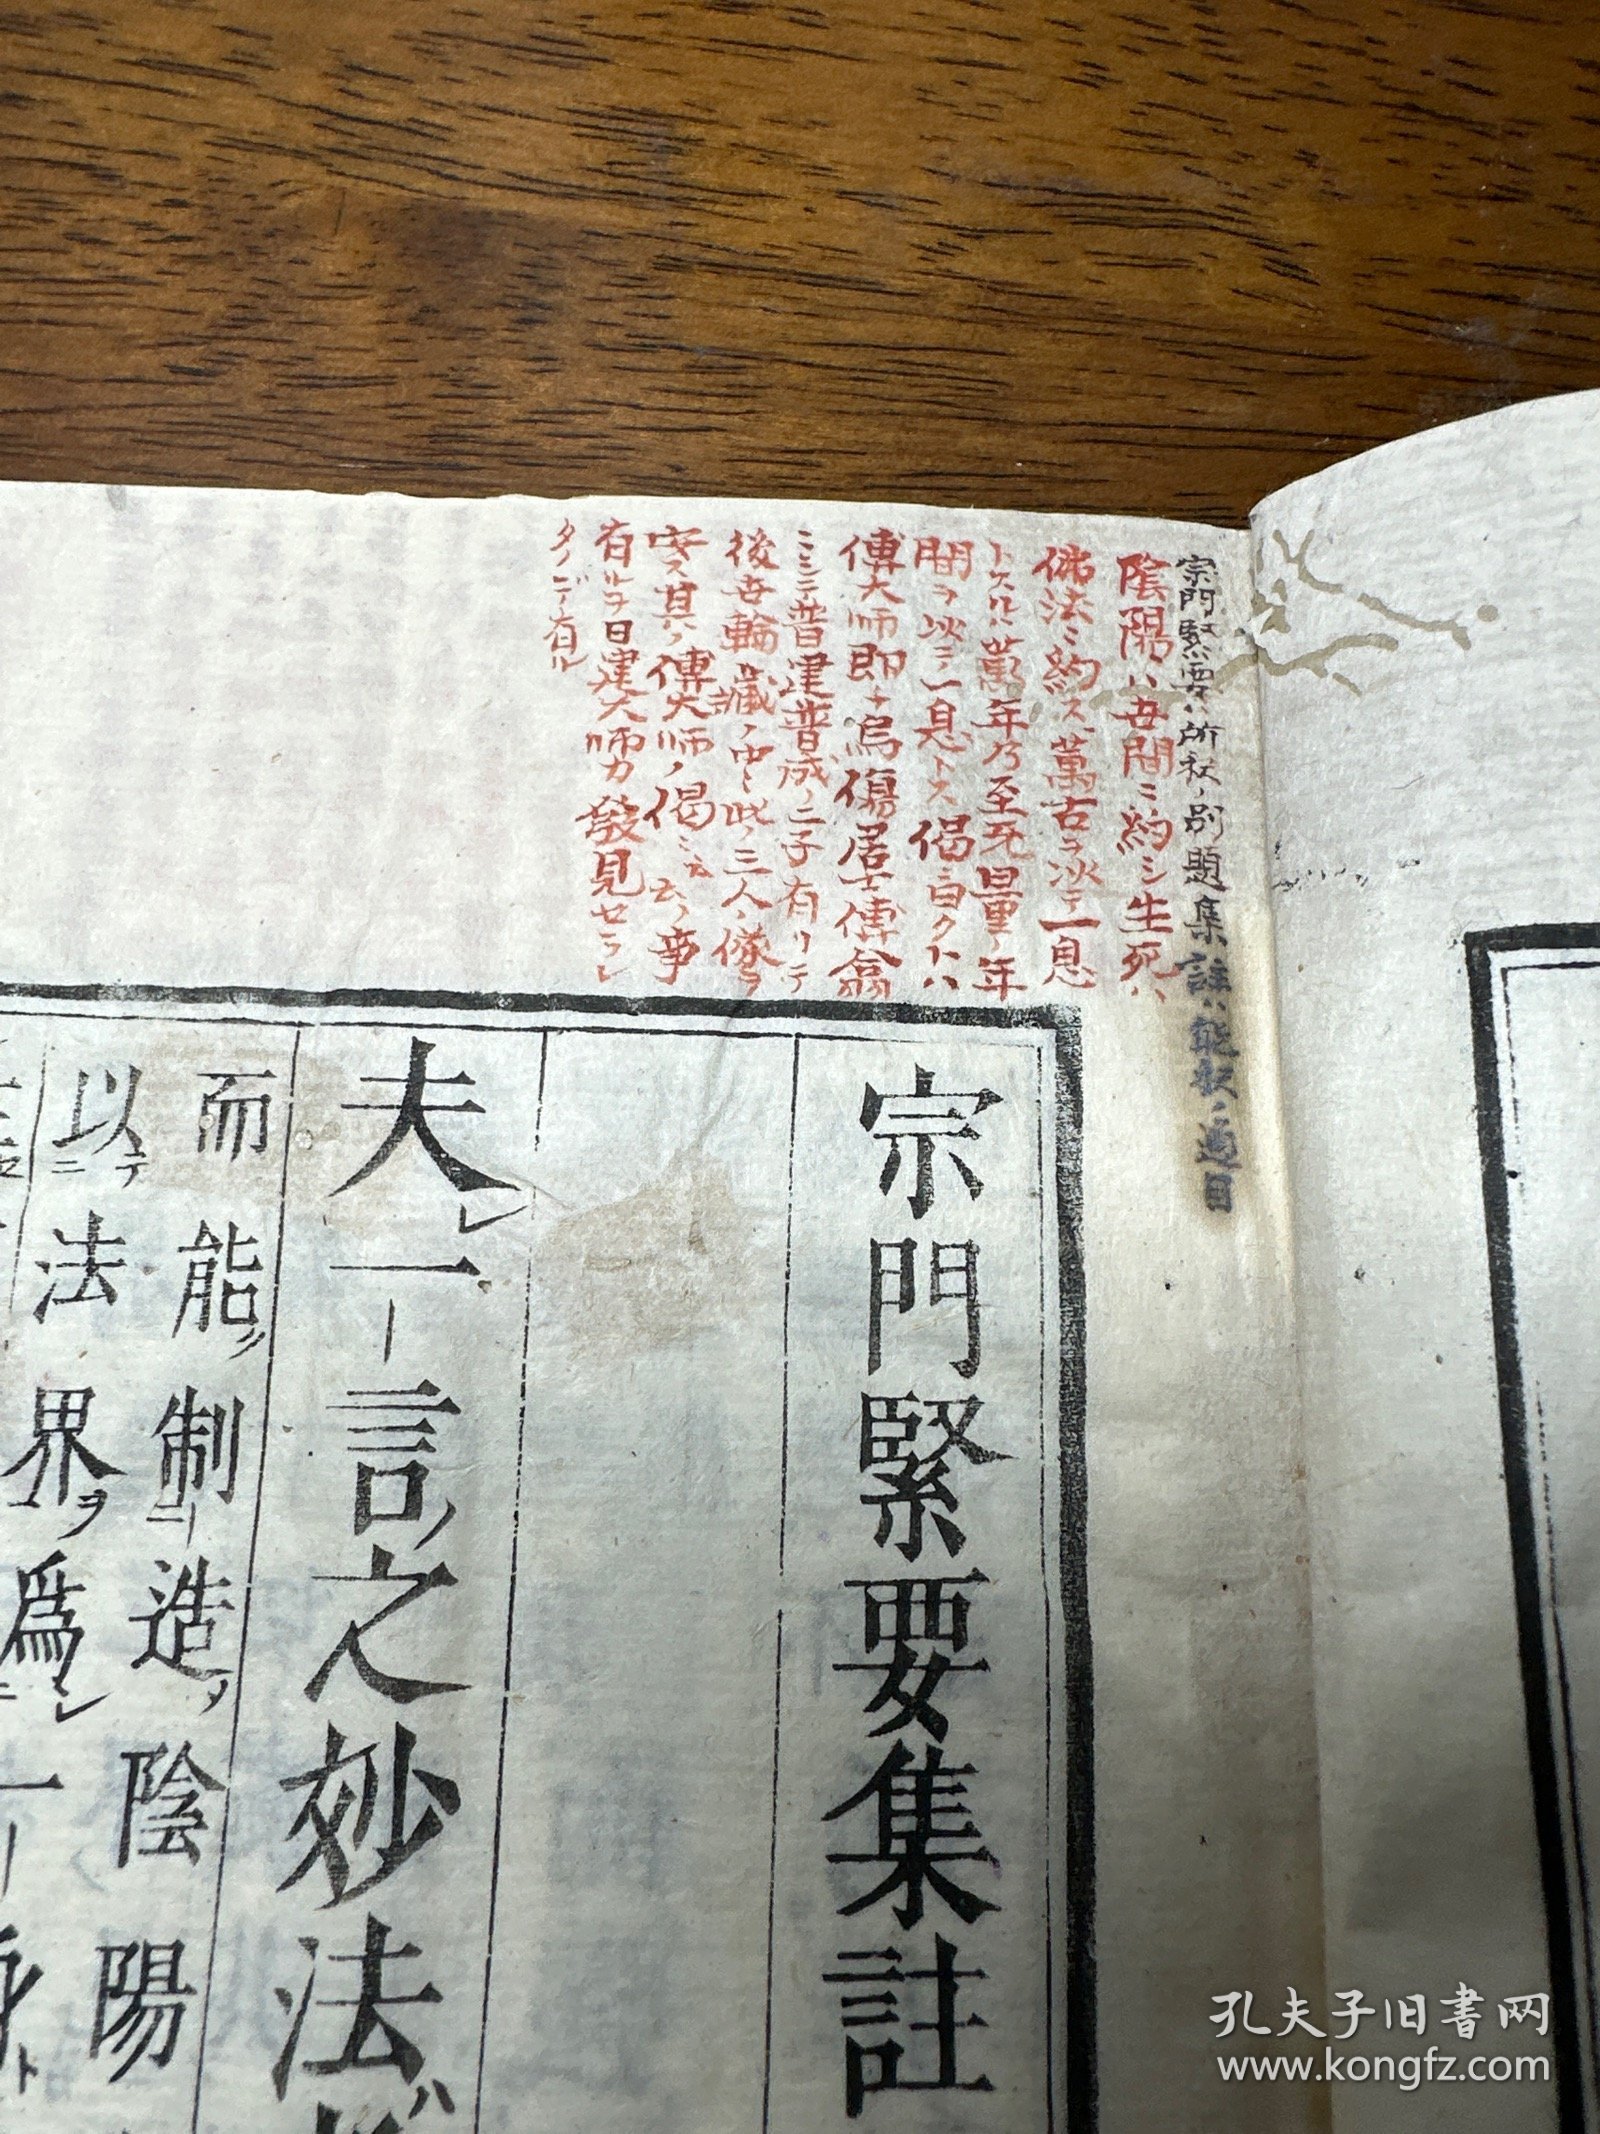 宗門緊要ハ所釈ノ別題集註ハ能釈ノ通目
陰陽ハ世間ニ約シ生死ハ
佛法ニ約ス萬古ヲ以テ一息
トスルハ萬年乃至無量ノ年
間ヲ以テ一息トス偈ニ曰クトハ
傅大師即チ烏傷居士傅翕
ニシテ普建普成ノ二子有リテ
後世輪藏ノ中ニ此ノ三人ノ像ヲ
安ス其ノ傅大師ノ偈ニ云云ノ事
有ルヲ日建大師カ發見セラレ
タノデ有ル
宗門緊要集註
夫レ一言ノ之妙法ハ
而能ク制造ス陰陽
以テ法界ヲ爲シ一